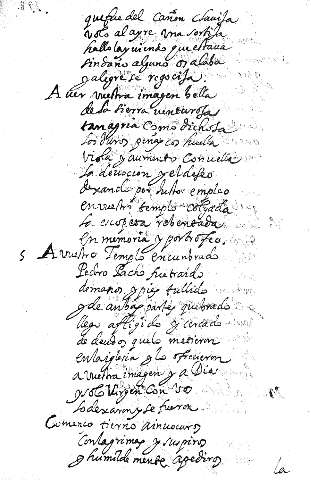 que fue del cañon clavija
volo al ayre una sortija
hallo la y viendo que estava
sin daño alguno os alaba
y alegre se regocija.
A ver vuestra imagen bella
de la sierra venturosa
tan agria como dichosa
los duros peñascos huella
viola y aumento con vella
la devocion y el deseo
dexando por justo empleo
en vuestro templo colgada
la escopeta rebentada
en memoria y por trofeo.
5 A vuestro Templo encumbrado
Pedro Pacho fue traido
de manos y pies tullido
y de ambas partes quebrado
llego afligido y cercado
de deudos que lo metieron
en la iglesia y lo ofrecieron
a vuestra imagen y a Dios
y solo Virgen con vos
lo dexaron y se fueron.
Comenco tierno a invocaros
con lagrimas y suspiros
y humildemente a pediros
la